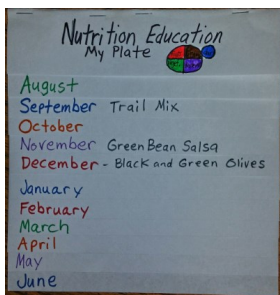 Nutrition Education
My Plate
August
September Trail Mix
October
November Green Bean Salsa
December - Black and Green Olives
January
February
March
April
May
June